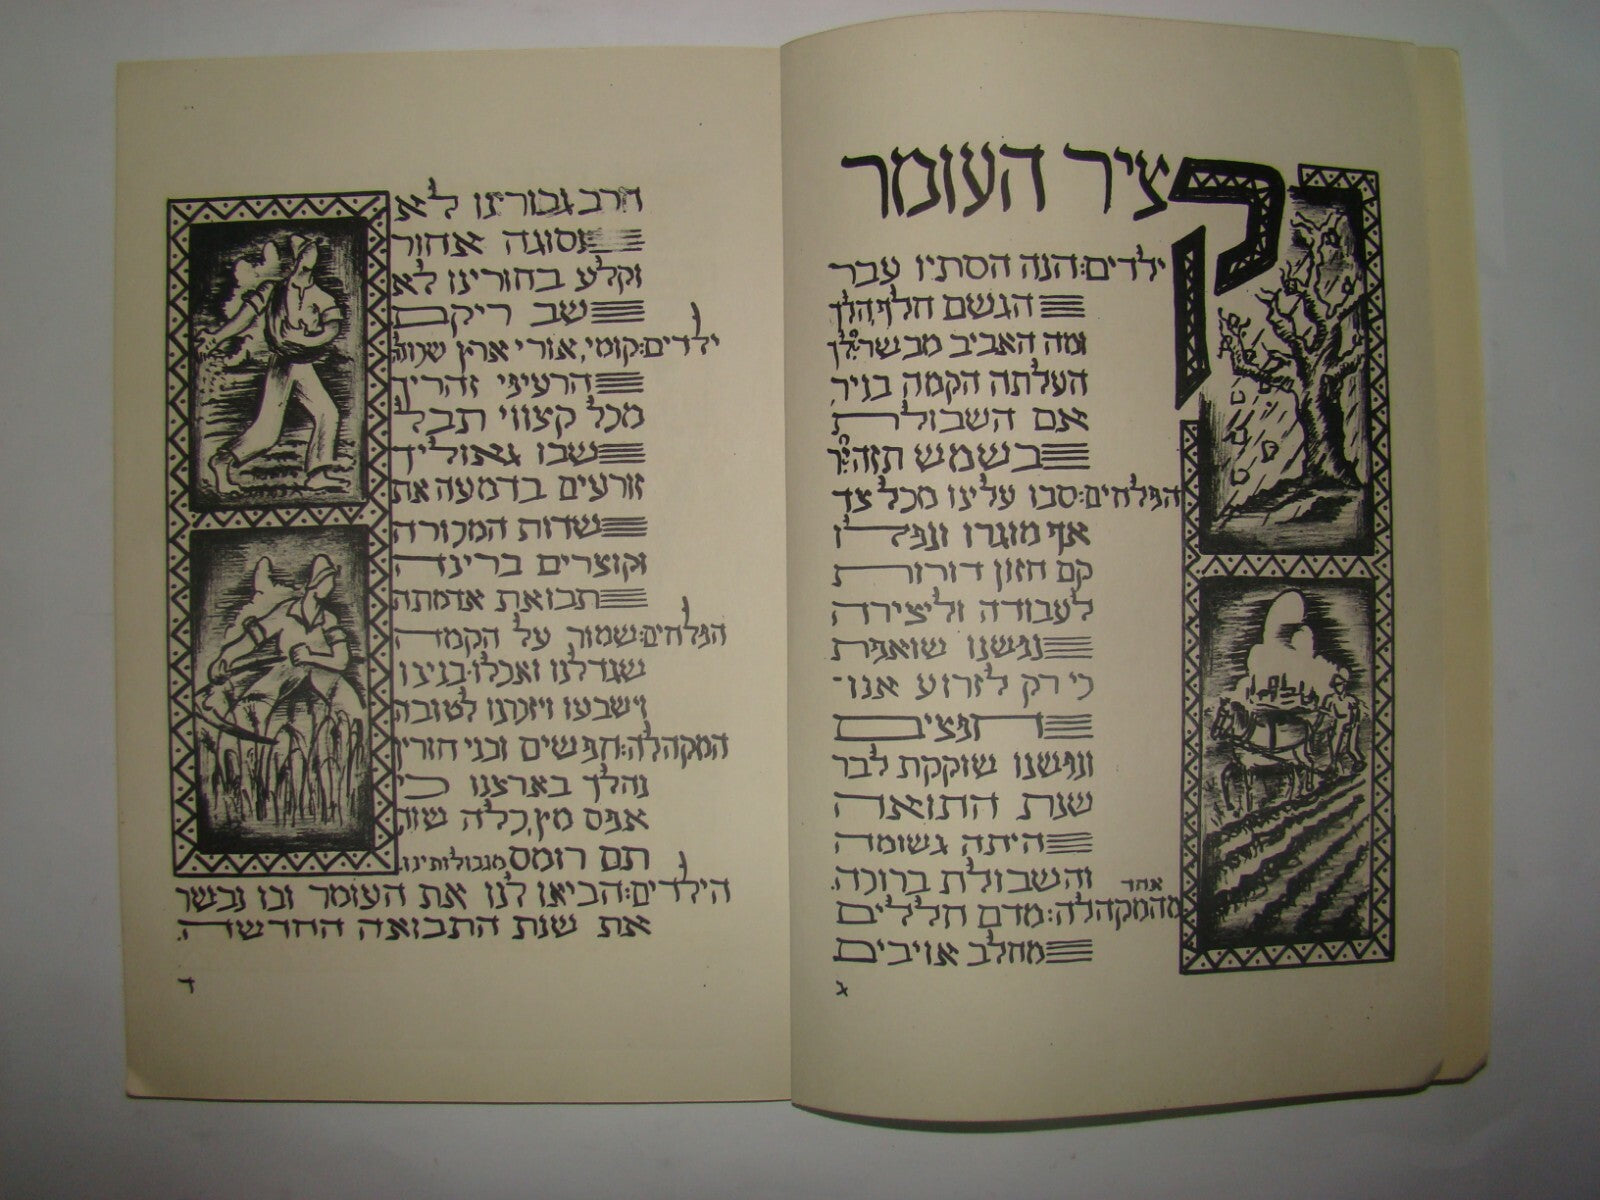 קציר העומר
ילדים: הנה הסתיו עבר
הגשם חלף, הלך
ומה האביב מבשר לך
העלתה הקמה בניר,
אם השבולת
בשמש תזהיר
הפלחים: סבו עלינו מכל צד
אף מוגרו ונפלו
קם חזון דורות
לעבודה וליצירה
נפשנו שואפת
כי רק לזרוע אנו־
חפצים
ונפשנו שוקקת לבר
שנת התואה
היתה גשומה
והשבולת ברוכה.
אחד
מהמקהלה: מדם חללים
מחלב אויבים
ג
חרב גבורינו לא
נסוגה אחור
וקלע בחורינו לא
שב ריקם
ילדים: קומי, אורי ארץ
הרעיפי זהריך
מכל קצווי תבל
שבו גאוליך
זורעים בדמעה את
שדות המכורה
וקוצרים ברינה
תבואת אדמתה
הפלחים: שמוך על הקמה
שגדלנו ואכלו בנינו
וישבעו ויזכרנו לטובה
המקהלה: חפשים ובני חורין
נהלך בארצנו כי
אפס מץ, כלה שוד,
תם רומס מגבולותינו.
הילדים: הביאו לנו את העומר ובו נבשר
את שנת התבואה החדשה.
ד